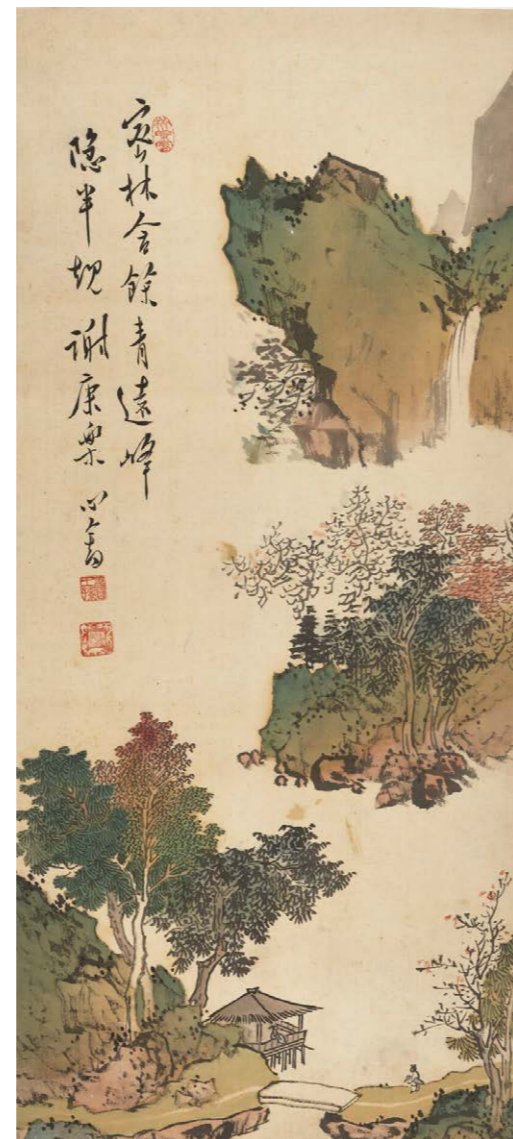 密林含餘青遠峰
隱半規謝康樂心畬